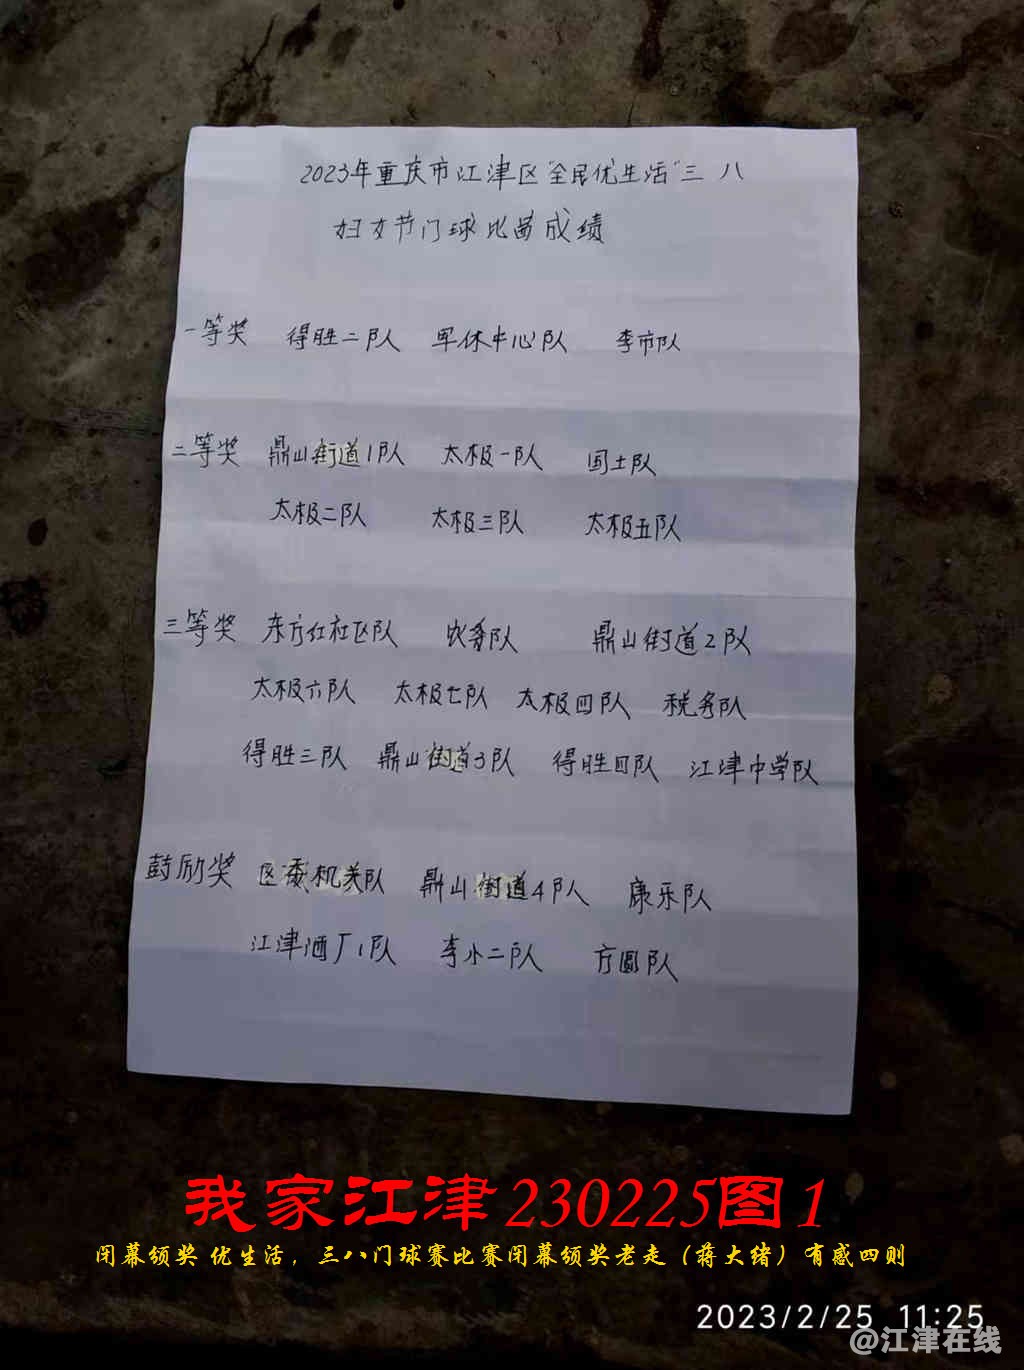 2023年重庆市江津区"全民优生活"三 八
妇女节门球比赛成绩
一等奖 得胜二队 军休中心队 李市队
二等奖 鼎山街道1队 太极一队 国土队
太极二队 太极三队 太极五队
三等奖 东方红社区队 农务队 鼎山街道2队
太极六队 太极七队 太极四队 税务队
得胜三队 鼎山街道3队 得胜四队 江津中学队
鼓励奖 区委机关队 鼎山街道4队 康乐队
江津酒厂1队 李小二队 方圆队
我家江津230225图1
闭幕颁奖 优生活，三八门球赛比赛闭幕颁奖老走（蒋大绪）有感四则
2023/2/25 11:25
@江津在线